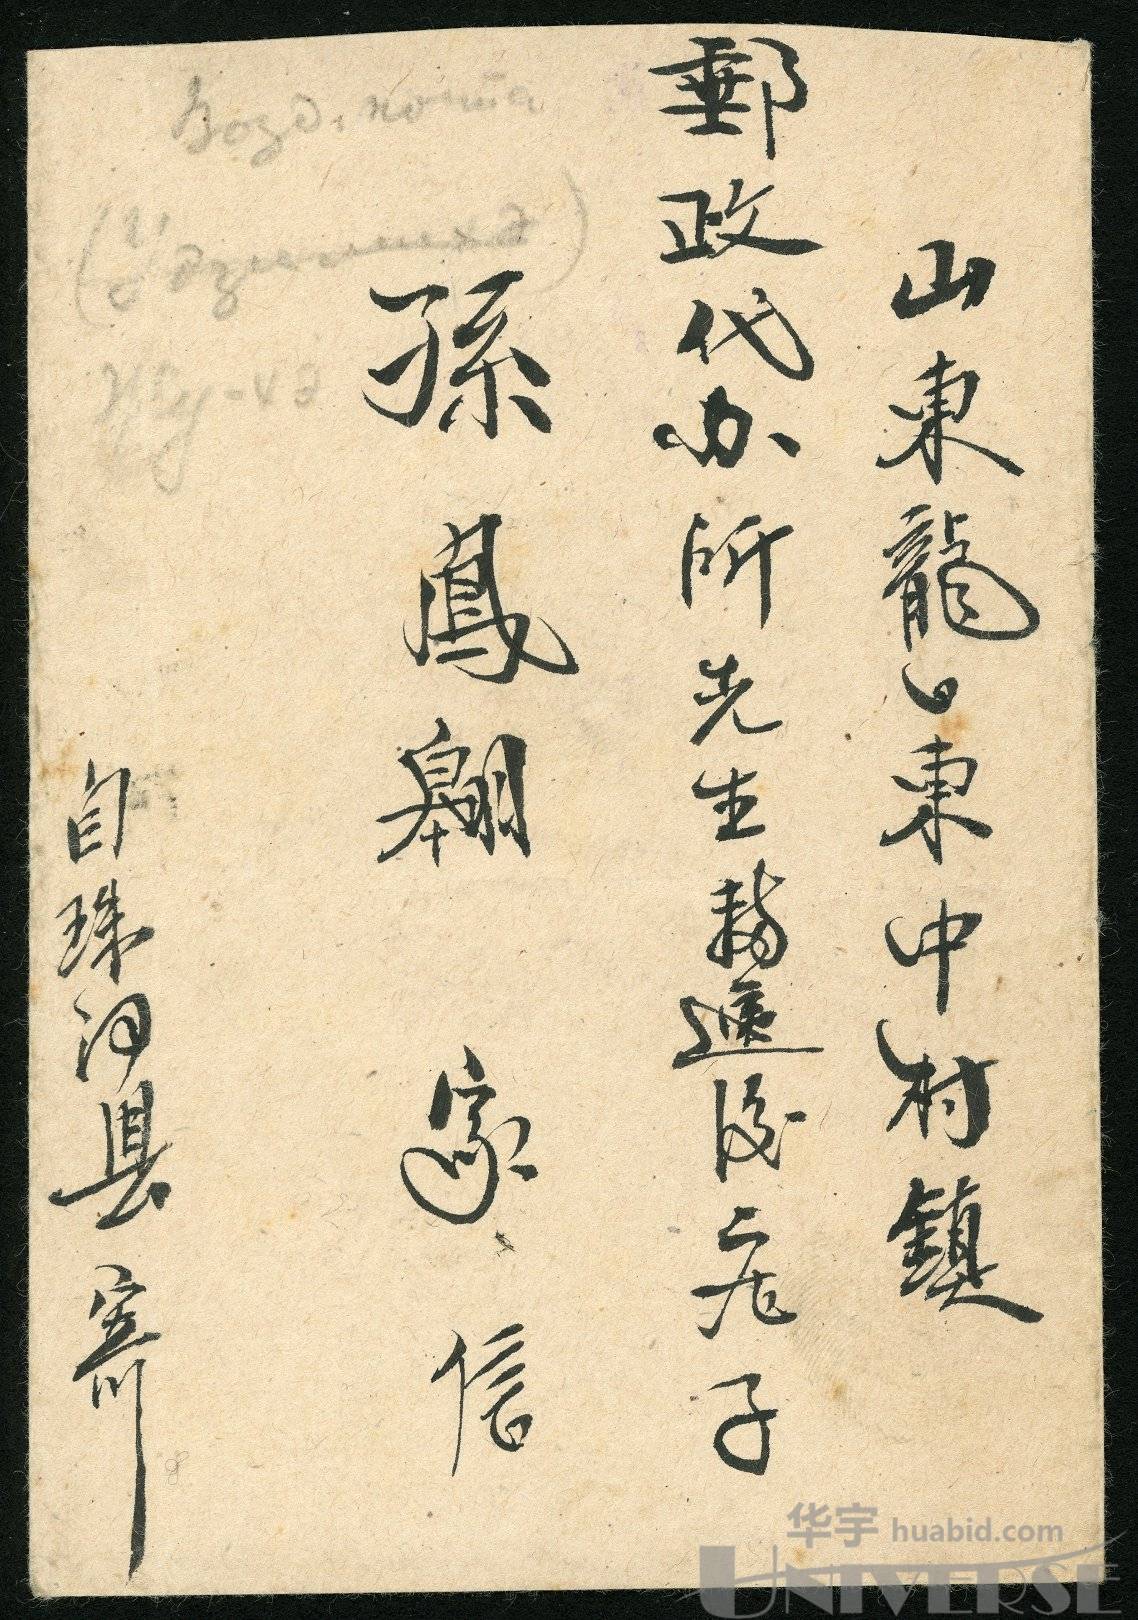 山東龍口東中村鎮
郵政代办所先生轉遞後亢子
孫鳳翱 家信
自珠河县寄
Возд. почта
华宇 huabid.com
UNIVERSE